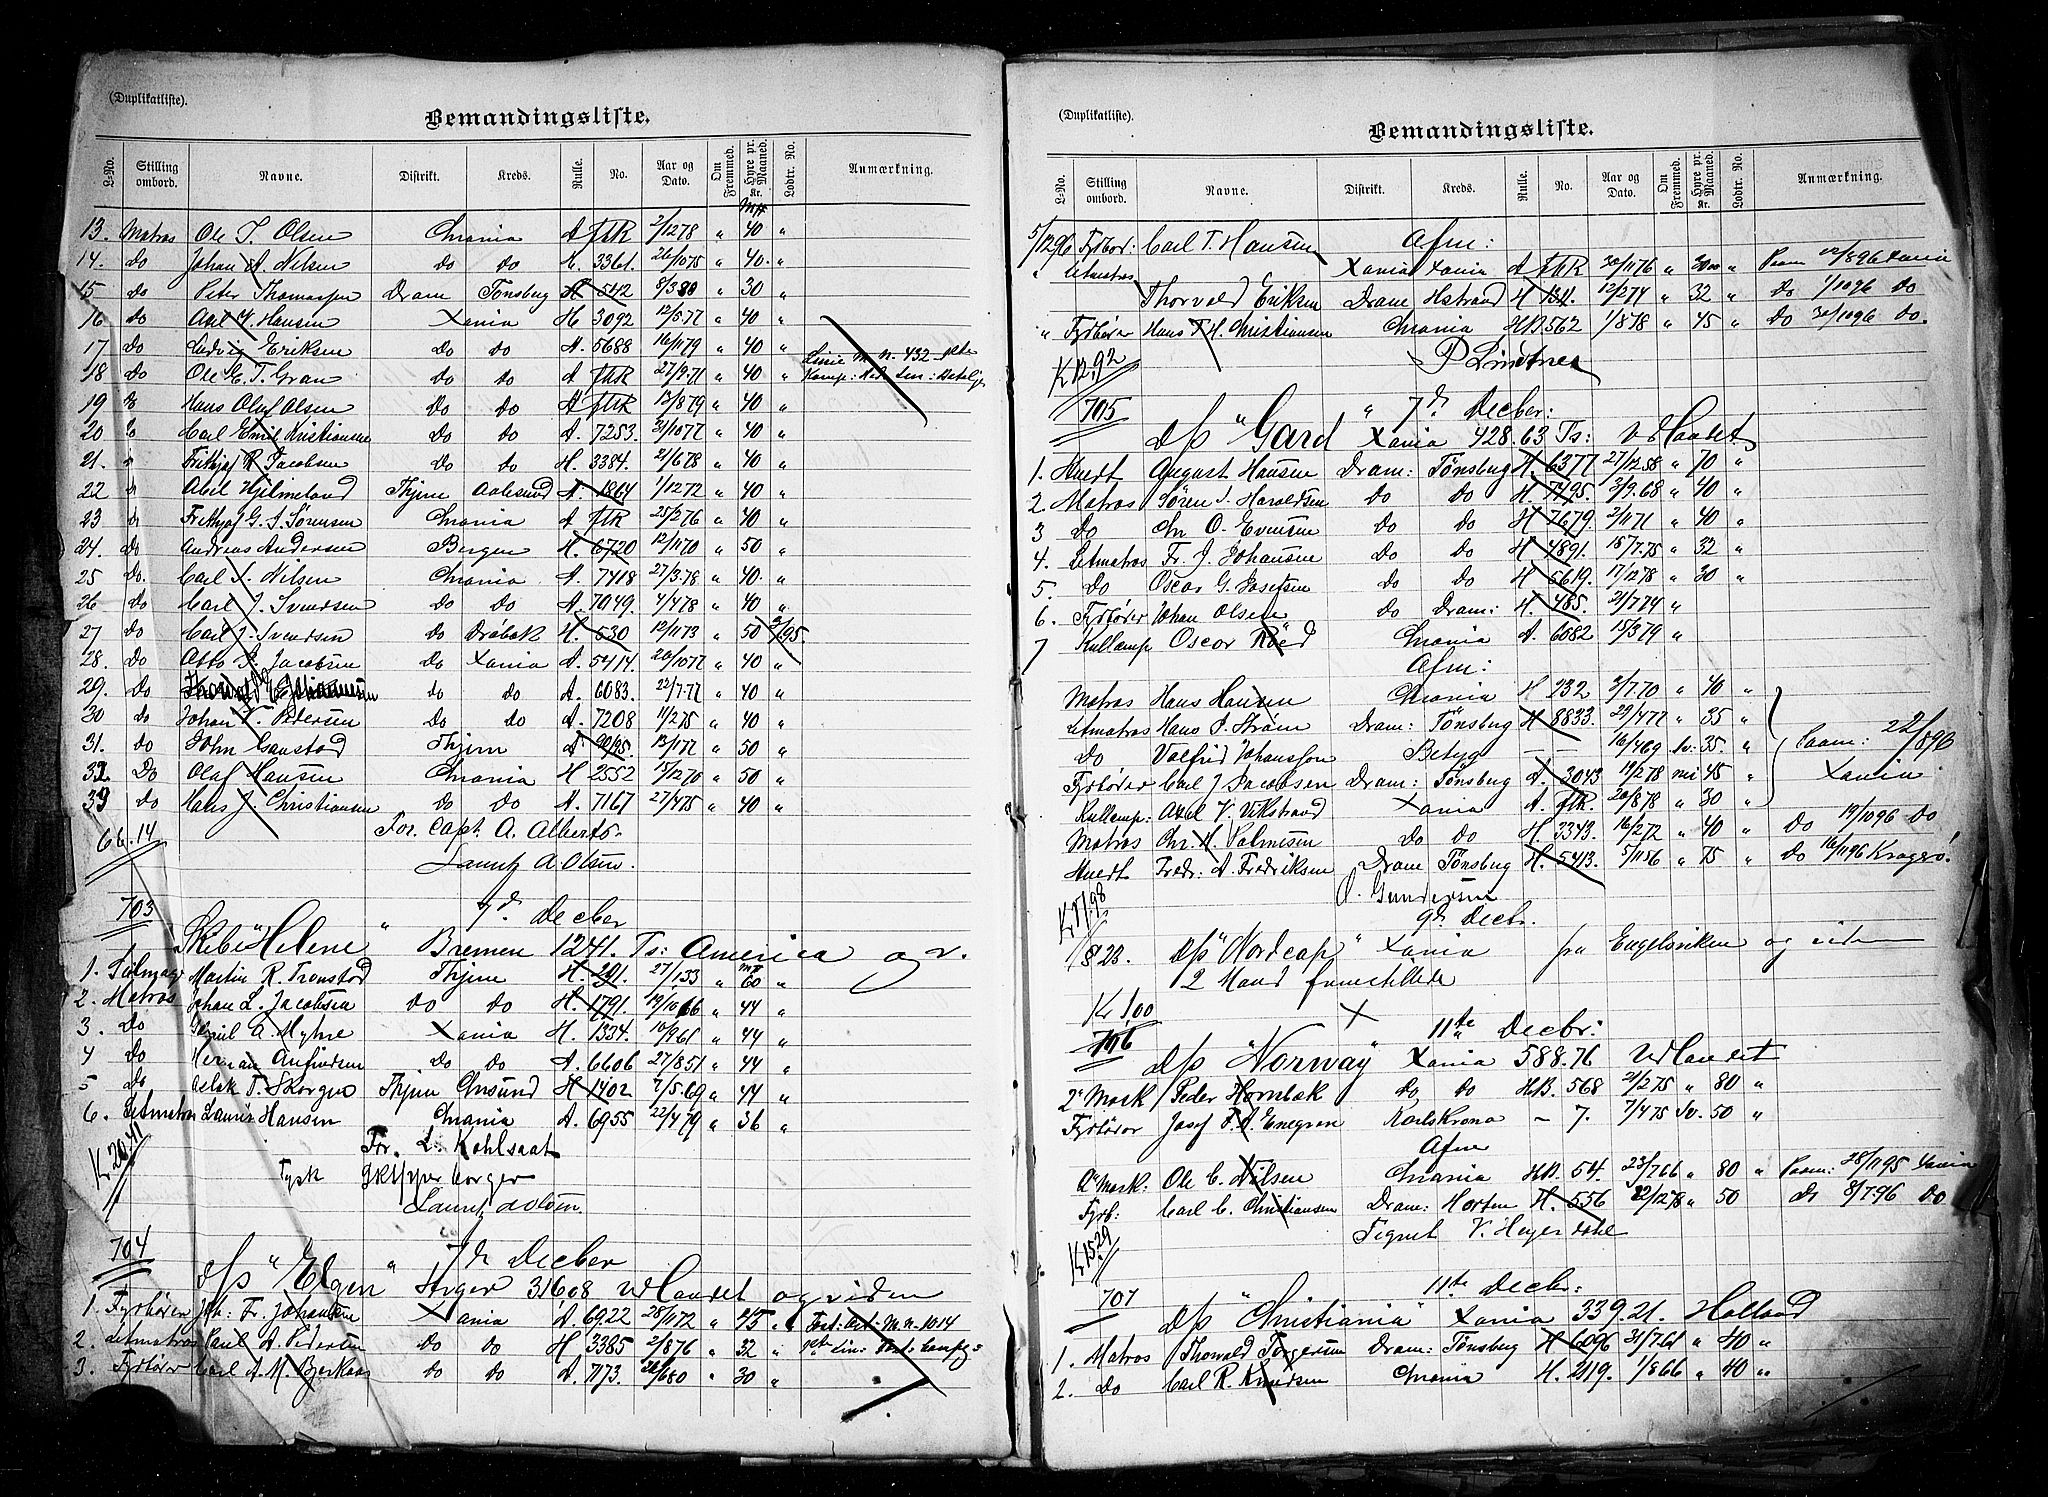 (Duplikatliste).
Bemandingsliste.
L-No. Stilling ombord. Navne. Distrikt. Kreds. Rulle. No. Aar og Dato. Om Fremmed. Hyre pr. Maaned. Kr. Lodtr. No. Anmærkning.
13. Matros Ole T. Olsen Chrania A 2/1278 " 40 "
14. Do Johan A Nilsen Do Do H. 3361. 26/1075 " 40. "
15 Do Peter Thomassen Dram Tønsbug H 542 8/380 " 30 "
16 Do Axel Y. Hansen Xania H 3092 12/5.77 " 40 "
17 Do Ludvig Eriksen Do Do A. 5688 16/1179 " 40 "
18 Do Ole E. T. Gran Do Do A 27/9.71 " 40 "
19 Do Hans Oluf Olsen Do Do A 13/879 " 40 "
20 Do Carl Emil Kristiansen Do Do A. 7253 31/1077 " 40 "
21. " Frithjof R. Jacobsen Do Do H. 3384. 21/678 " 40 "
22 " Abel Hjelmeland Thjem Aalesund A. 1864 1/1272 " 40 "
23 Do Frithjof G. S. Sørensen Chrania A 25/276 " 40 "
24. Do Andreas Andersen Bergen H. 6720 12/1170 " 50 "
25 Do. Carl S. Nilsen Chrania A. 7418 27/3.78 " 40. "
26 Do Carl J. Svendsen Do Do A. 7049. 4/478 " 40 "
27 Do Carl J. Svendsen Do Drøbak H. 630 12/1173 " 50 2/95
28. Do Otto P. Jacobsen Do Xania A. 5414. 20/1077 " 40 "
29. Do Do Do A. 6083. 22/7.77 " 40 "
30 Do Johan T. Pedersen Do Do A. 7208 11/275 " 40 "
31. Do John Gaustad Thjem A 13/177 " 50 "
32 Do Olaf Hansen Chrania H 2552 15/1270 " 50 "
33 Do Hans J. Christiansen Do Do A. 7167 27/475 " 40 "
66.14 For. Capt. A. Alberts
Lauritz A. Olsen.
703 7d Decber
Skibe "Helene" Bremen 1241. Ts: America og v.
1. Martin R. Tronstad Thjem H 291. 27/133 " 60 "
2. Matros Johan L. Jacobsen Do Do H. 1791. 19/1066 " 44 "
3. Do Emil A. Myhre Xania H. 1334. 10/961 " 44 "
4 Do Herman Anfindsen Do Do A. 6606 27/851 " 44 "
5 Do Aslak T. Skorgen Thjem Chrsund H 1402 7/5.69 " 44 "
6. Letmatros Lauris Hansen Chrania A. 6955 22/479 " 36 "
K 20.41 For. L. Kohlsaat
Tysk Skipper borger
Lauritz A Olsen.
704 7d Decber
d/s "Elgen" Arger 316.08 v Landet og viden
1. Fyrbøren Joh: Fr. Johansen Xania A. 6922 28/1172 " 45 " M. n. 1014
2. Letmatros Paul A. Pedersen Do Do H 3385 2/876 " 32 "
3. Fyrbører Carl A. M. Bjerkaas Do Do A. 7173. 20/680 " 30 "
(Duplikatliste).
Bemandingsliste.
L-No. Stilling ombord. Navne. Distrikt. Kreds. Rulle. No. Aar og Dato. Om Fremmed. Hyre pr. Maaned. Kr. Lodtr. No. Anmærkning.
5/1296 Fyrbør: Carl T. Hansen Afm:
" Letmatros Xania Xania A 30/1176 " 30 " Paam 22/896 Xania
Thorvald Eriksen Dram Hstrand H 1311. 12/274 " 32 " Do 1/1096 Do
" Fyrbører Hans T. H. Christiansen Chrania HB. 562 1/878 " 45 " Do 30/1096 Do.
K 12.92 P Lindtner
705 " 7d Decber:
d/s "Gard Xania 428.63 Ts: v Landet
1. Huedt August Hansen Dram: Tønsbug H. 6377 27/1258 " 70 "
2 Matros Søren S. Haraldsen Do Do H. 7495. 3/9.68 " 40 "
3 Do Chr O. Evensen Do Do H 7679. 2/1171 " 40 "
4. Letmatros Fr. J. Johansen Do Do H 4891. 18/7.75 " 32 "
5. Do Oscar G. Josefsen Do Do H 5619. 17/1278 " 30 "
6. Fyrbører Johan Olsen Do Dram: H. 485. 21/774 "
7 Kullemp Oscar Røed Chrania A. 6082 15/379 "
Afm:
Matros Hans Hansen Chrania H 232 2/7.70 " 40 "
Letmatros Hans P. Strøm Dram: Tønsbug H 8833. 29/477 " 35 "
Do Valfrid Johansson Betyg — — 16/469 Sv: 35. " Paam: 22/896
Fyrbører Carl J Jacobsen Dram: Tønsbug A. 3043 19/278 mi 45 " Xania
Kullemp: Axel V. Vikstrand Xania A. 20/878 " 30 "
Matros Chr. H. Salmesen Do Do H. 3343. 16/272 " 40 " Do 19/1096 Do
Huedt Fredr. A. Fredriksen Dram Tønsbug H. 5413. 5/1156 " 75 " Do 16/1196 Kragerø.
K 17.98 O. Gundersen
9d Decbr.
823. d/s "Nordcap" Xania fra Engelsviken og viden
2 Mand fremstillede
Kr 1.00 X
706 11te Decbr:
d/s "Norway" Xania 588.76 v Landet
2' Mask Peder Hornbæk Do Do HB. 568 2/275 " 80 "
Fyrbører Josef F. A. Enegren Karlskrona — 7. 7/475 Sv. 50 "
Afm
2' Mask: Ole C. Nilsen Chrania HB. 54. 23/766 " 80 " Paam: 28/1195 Xania
Fyrb: Carl C. Christiansen Dram: Horten H. 556 22/1278 " 50 Do 8/7.96 Do
K 15.29 Tegnet V. Heyerdahl
707 11te Decbr:
d/s "Christiania" Xania 339.21. Holland
1. Matros Thorvald Torgersen Dram: Tønsbug H 6096 31/761 " 40 "
2. Do Carl R. Knudsen Chrania H. 2119. 1/866 " 40 "